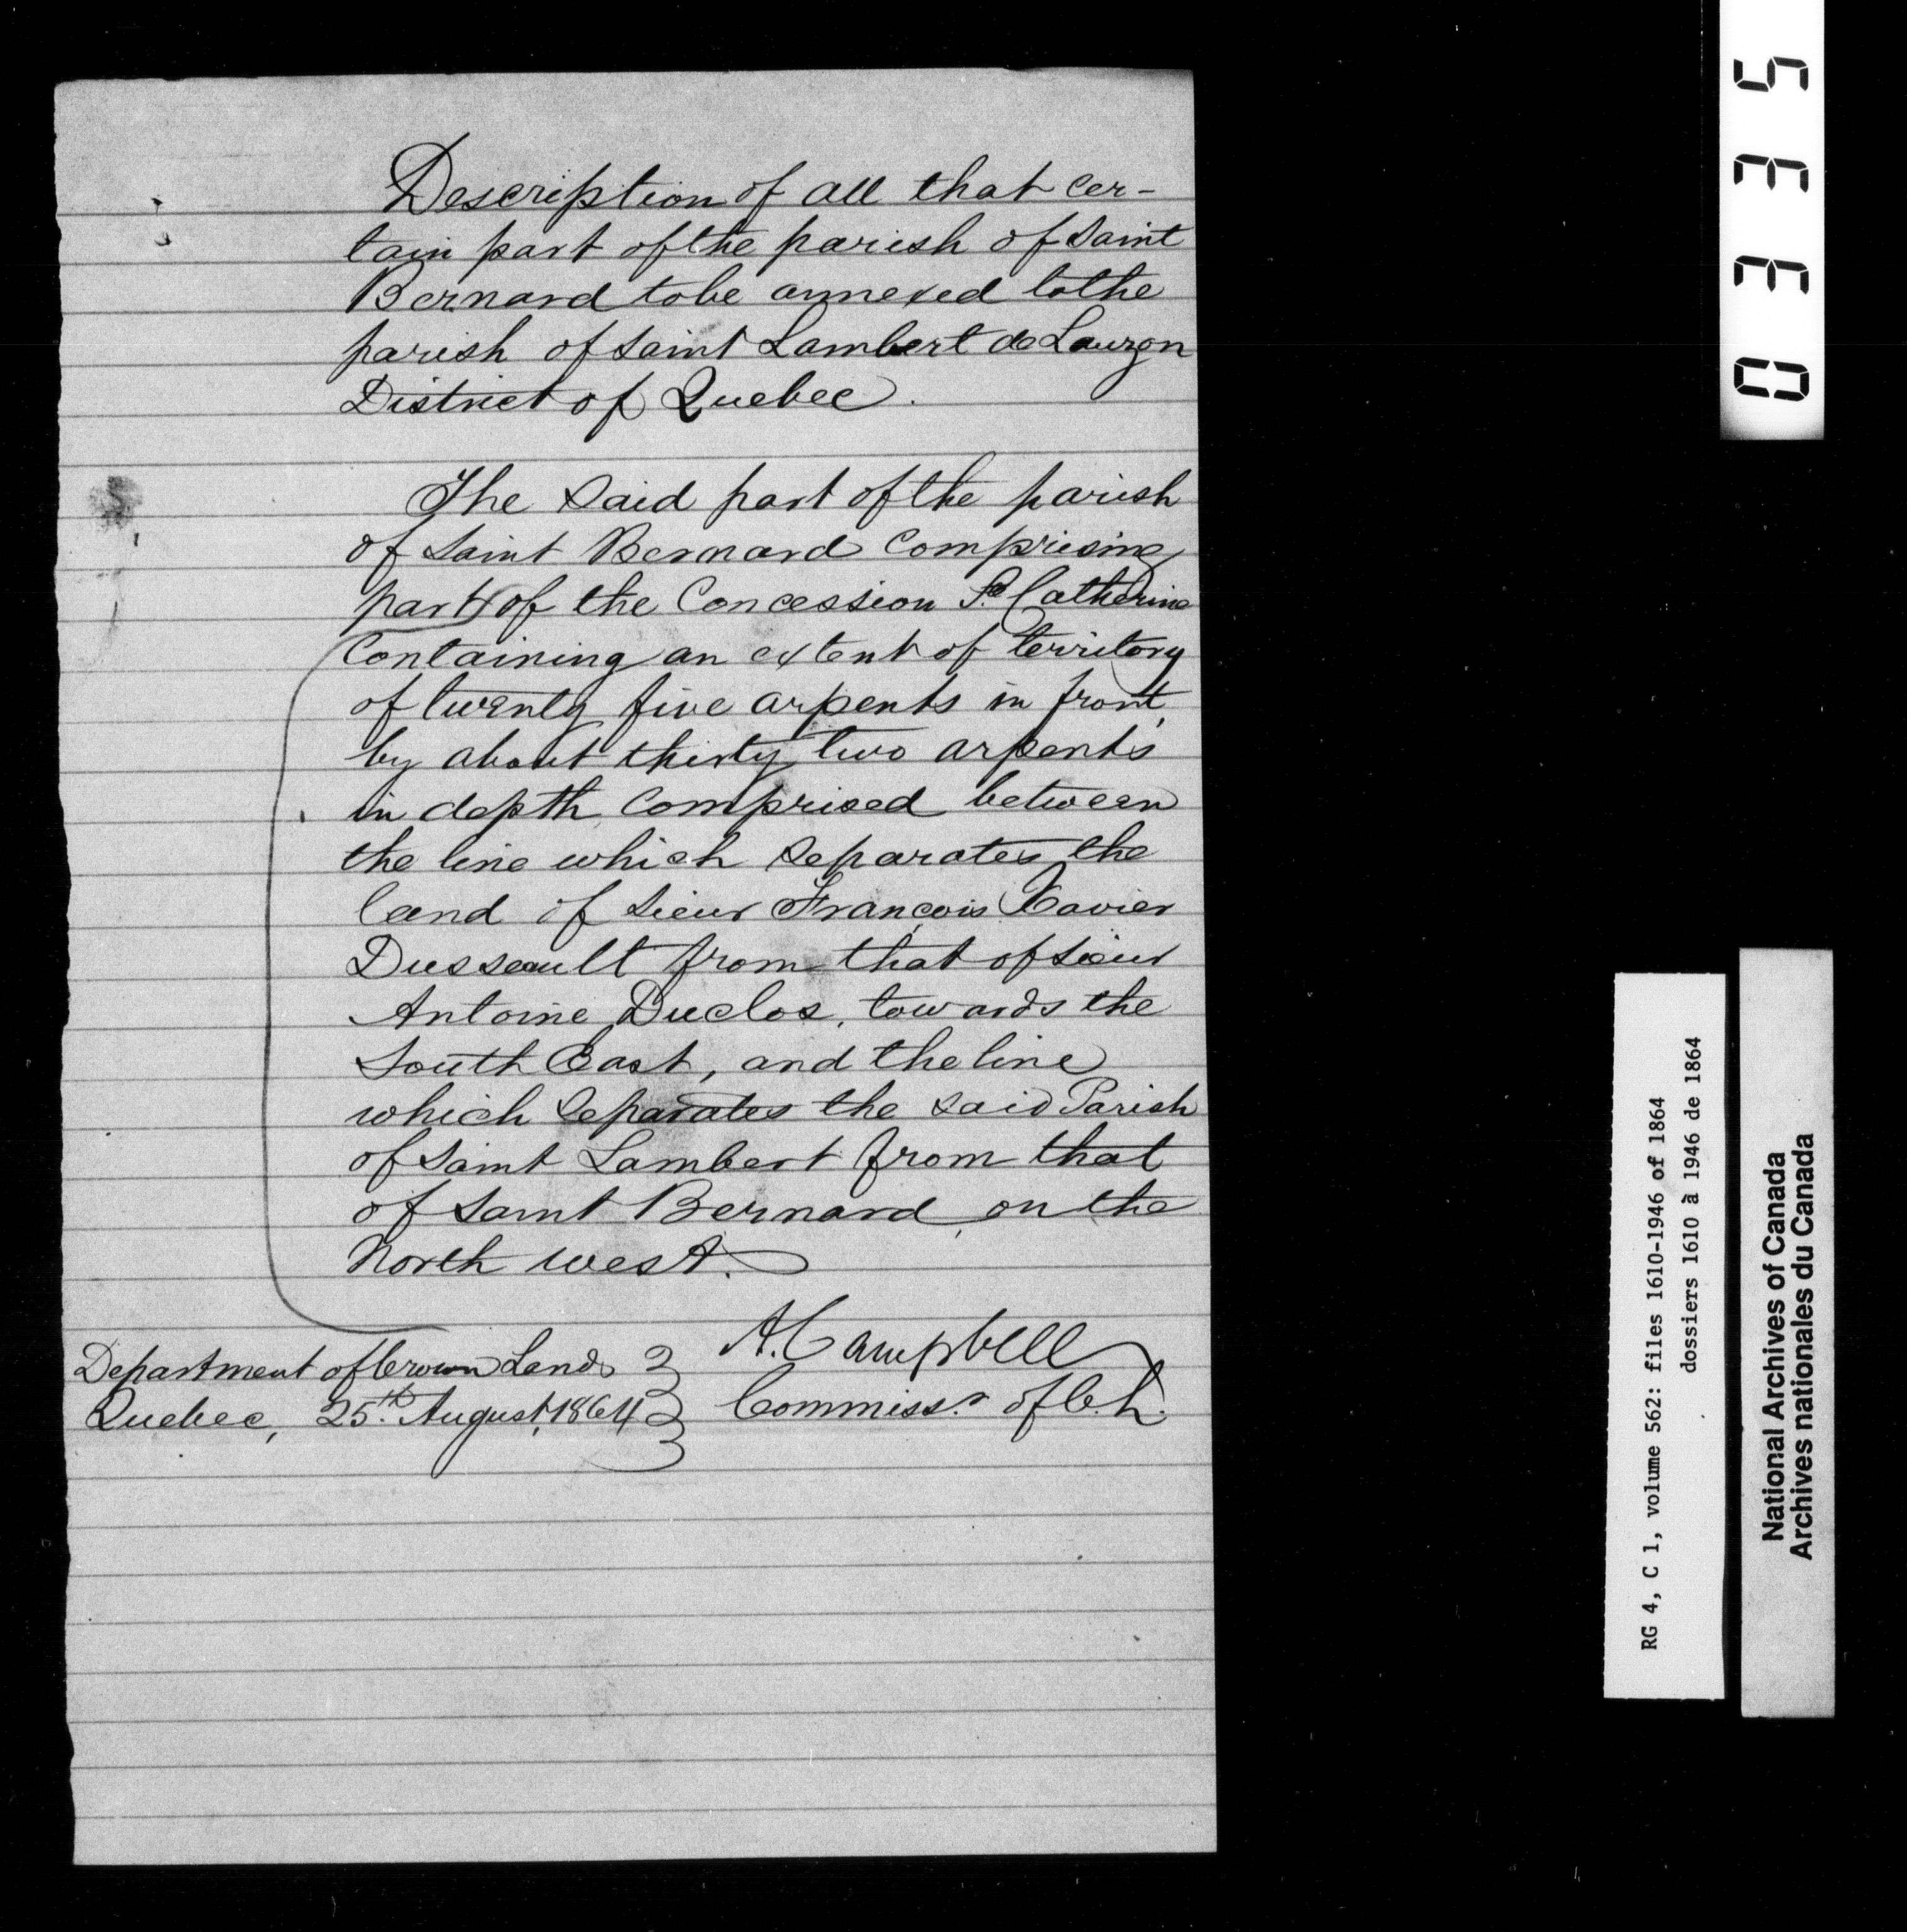 Description of all that cer-
tain part of the parish of Saint
Bernard to be annexed to the
parish of Saint Lambert de Lauzon
District of Quebec.
The said part of the parish
of Saint Bernard Comprising
part of the Concession Ste Catherine
Containing an extent of territory
of twenty five arpents in front,
by about thirty two arpents
in depth, Comprised between
the line which separates the
land of Sieur François Xavier
Dusseault from that of Sieur
Antoine Duclos, towards the
South East, and the line
which separates the said Parish
of Saint Lambert from that
of Saint Bernard, on the
North west.
Department of Crown Lands
Quebec, 25th August, 1864
A. Campbell
Commissr of C. L.
0335
RG 4, C 1, volume 562: files 1610-1946 of 1864
dossiers 1610 à 1946 de 1864
National Archives of Canada
Archives nationales du Canada